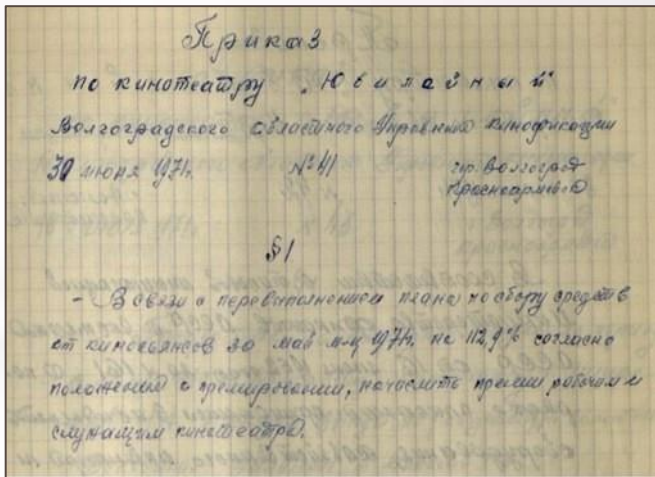 Приказ
по кинотеатру „Юбилейный"
Волгоградского областного Управления кинофикации
30 июня 1971г. №41 гор. Волгоград
Красноармейск
§1
- В связи с перевыполнением плана по сбору средств
от киносеансов за май м-ц 1971г. на 112,9% согласно
положения о премировании, начислить премии рабочим и
служащим кинотеатра.